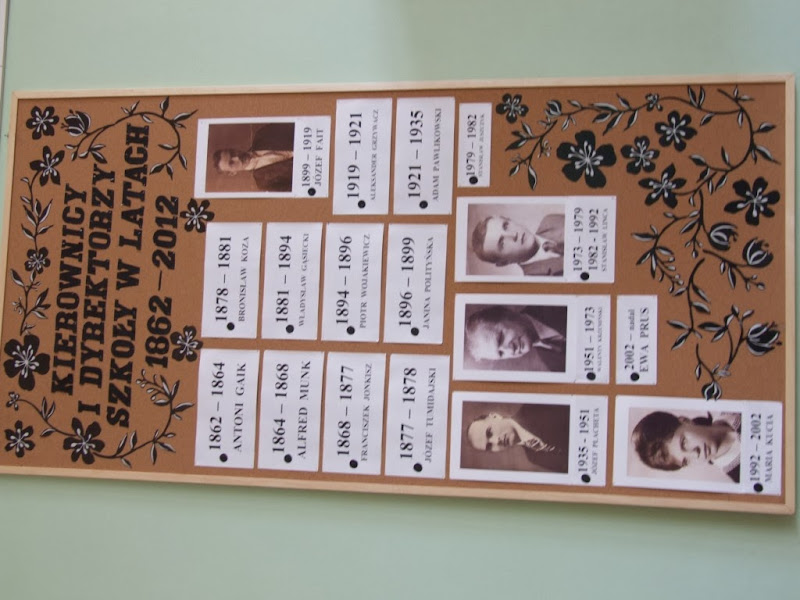 KIEROWNICY
I DYREKTORZY
SZKOŁY W LATACH
1862 – 2012
1862 – 1864
ANTONI GAIK
1864 – 1868
ALFRED MUNK
1868 – 1877
FRANCISZEK JONKISZ
1877 – 1878
JÓZEF TUMIDAJSKI
1878 – 1881
BRONISŁAW KOZA
1881 – 1894
WŁADYSŁAW GĄSIECKI
1894 – 1896
PIOTR WOJAKIEWICZ
1896 – 1899
JANINA POLITYŃSKA
1899 – 1919
JÓZEF FAJT
1919 – 1921
ALEKSANDER GRZYWACZ
1921 – 1935
ADAM PAWLIKOWSKI
1935 - 1951
JÓZEF PŁACHETA
1951 – 1973
WALENTY
1973 – 1979
1982 - 1992
STANISŁAW LINCA
1979 – 1982
STANISŁAW
1992 – 2002
MARIA KUCIA
2002 – nadal
EWA PRUS